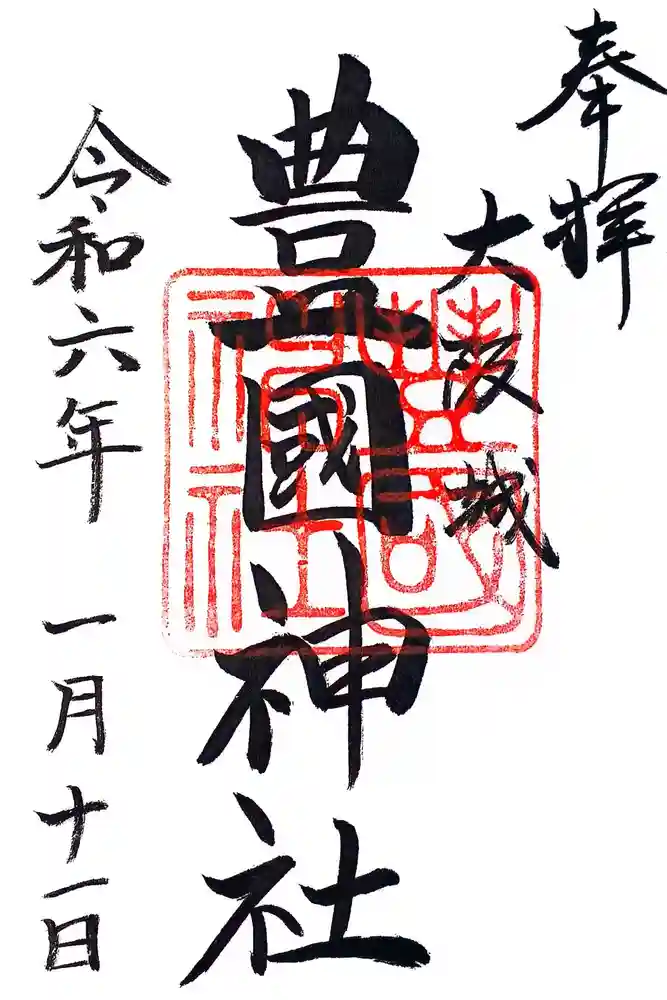 奉拝
大阪城
豊國神社
豊國神社
令和六年 一月十一日